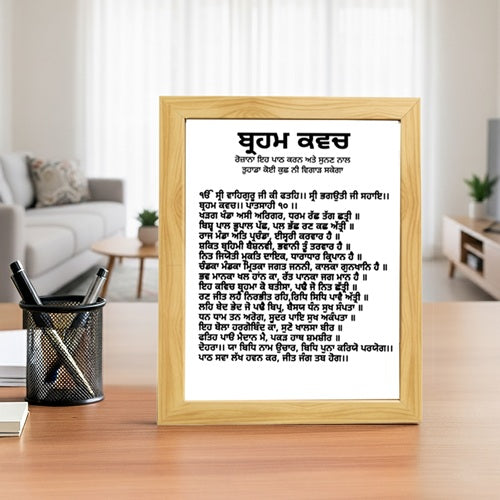 ਬ੍ਰਹਮ ਕਵਚ
ਰੋਜ਼ਾਨਾ ਇਹ ਪਾਠ ਕਰਨ ਅਤੇ ਸੁਨਣ ਨਾਲ
ਤੁਹਾਡਾ ਕੋਈ ਕੁਛ ਨੀ ਵਿਗਾੜ ਸਕੇਗਾ
ੴ ਸ੍ਰੀ ਵਾਹਿਗੁਰੂ ਜੀ ਕੀ ਫਤਹਿ।। ਸ੍ਰੀ ਭਗਉਤੀ ਜੀ ਸਹਾਇ।।
ਬ੍ਰਹਮ ਕਵਚ।। ਪਾਤਸਾਹੀ ੧੦ ।।
ਖੜਗ ਖੰਡਾ ਅਸੀ ਅਰਿਗਰ, ਧਰਮ ਰੱਛ ਤੱਗ ਛਤ੍ਰੀ ॥
ਬਿਸ੍ਵ ਪਾਲ ਭੂਪਾਲ ਪੱਛ, ਪਲ ਭੱਛ ਰਣ ਕਛ ਅੱਤ੍ਰੀ ॥
ਰਾਜ ਮੰਡਾ ਅਤਿ ਪ੍ਰਚੰਡਾ, ਈਸੁਰੀ ਕਰਵਾਰ ਹੈ ॥
ਸ਼ਕਿਤ ਬ੍ਰਹਿਮੀ ਬੈਸ਼ਨਵੀ, ਭਵਾਨੀ ਤੂੰ ਤਰਵਾਰ ਹੈ ॥
ਨਿਤ ਜਿਯੋਤੀ ਮੁਕਤਿ ਦਾਇਕ, ਧਾਰਾਧਾਰ ਕ੍ਰਿਪਾਨ ਹੈ ॥
ਚੰਡਕਾ ਮੰਡਕਾ ਮ੍ਰਿਤਕਾ ਜਗਤ ਜਨਨੀ, ਕਾਲਕਾ ਗੁਨਖਾਨਿ ਹੈ ॥
ਭਵ ਮਾਨਕਾ ਖਲ ਹਾਨ ਕਾ, ਰੱਤ ਪਾਨਕਾ ਜਗ ਮਾਨ ਹੈ ॥
ਇਹ ਕਵਿਚ ਬ੍ਰਹਮ ਕੋ ਬਤੀਸਾ, ਪਢੈ ਜੋ ਨਿਤ ਛੱਤ੍ਰੀ ॥
ਰਣ ਜੀਤ ਲਹੈ ਨਿਰਭੀਤ ਰਹਿ,ਰਿਧਿ ਸਿਧਿ ਪਾਵੈ ਅੱਤ੍ਰੀ ॥
ਲਹਿ ਬੇਦ ਭੇਦ ਜੋ ਪਢੈ ਬਿਪ੍ਰ, ਬੈਸਯ ਧੰਨ ਸੁਖ ਸੰਪਤਾ ॥
ਧਨ ਧਾਮ ਤਨ ਅਰੋਗ, ਸੂਦਰ ਪਾਇ ਸੁਖ ਅਕੰਪਤਾ ॥
ਇਹ ਬੋਲਾ ਹਰਗੋਬਿੰਦ ਕਾ, ਸੁਣੋ ਖਾਲਸਾ ਬੀਰ ॥
ਫਤਿਹ ਪਾਓ ਮੈਦਾਨ ਮੈਂ, ਪਕੜ ਹਾਥ ਸ਼ਮਸ਼ੀਰ ॥
ਦੋਹਰਾ।। ਯਾ ਬਿਧਿ ਨਾਮ ਉਚਾਰ, ਬਿਧਿ ਪੁਨਾ ਕਰਿਯੋ ਪਰਯੋਗ।।
ਪਾਠ ਸਵਾ ਲੱਖ ਹਵਨ ਕਰ, ਜੀਤ ਜੰਗ ਤਬ ਹੋਗ।।